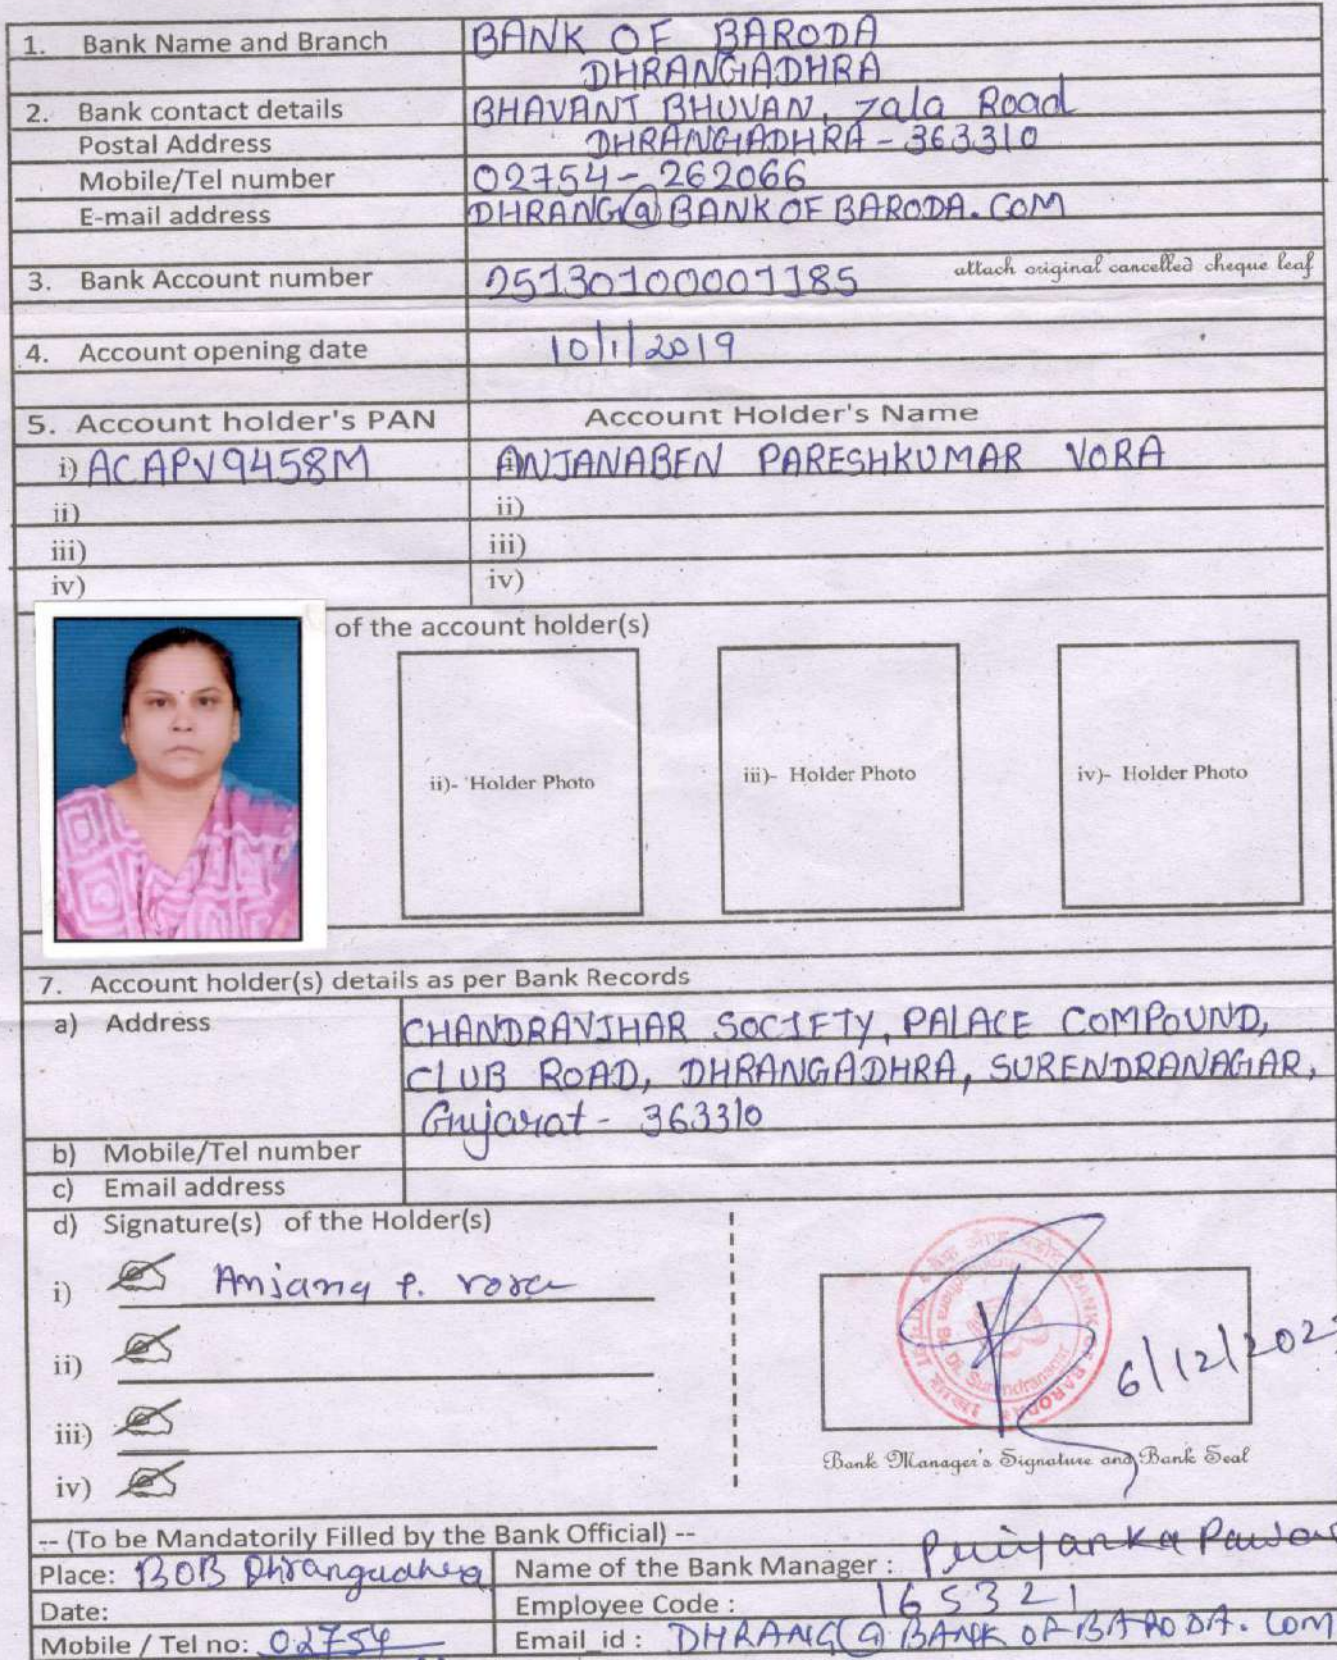 1. Bank Name and Branch BANK OF BARODA
DHRANGADHRA
2. Bank contact details BHAVANI BHUVAN, zala Road
Postal Address DHRANGADHRA - 363310
Mobile/Tel number 02754 - 262066
E-mail address DHRANG@BANKOFBARODA.COM
3. Bank Account number 25130100001185 attach original cancelled cheque leaf
4. Account opening date 10/1/2019
5. Account holder's PAN Account Holder's Name
i) ACAPV9458M ANJANABEN PARESHKUMAR VORA
ii) ii)
iii) iii)
iv) iv)
of the account holder(s)
ii)- Holder Photo iii)- Holder Photo iv)- Holder Photo
7. Account holder(s) details as per Bank Records
a) Address CHANDRAVIHAR SOCIETY, PALACE COMPOUND,
CLUB ROAD, DHRANGADHRA, SURENDRANAGAR,
Gujarat - 363310
b) Mobile/Tel number
c) Email address
d) Signature(s) of the Holder(s)
i) Anjana P. vora
ii)
iii)
iv)
BANK OF BARODA
Di. Surendranagar
6/12/202
Bank Manager's Signature and Bank Seal
-- (To be Mandatorily Filled by the Bank Official) --
Place: BOB Dhrangadhra Name of the Bank Manager : Priyanka Pawar
Date: Employee Code : 165321
Mobile / Tel no: 02754 Email_id : DHRANG@BANKOFBARODA.COM